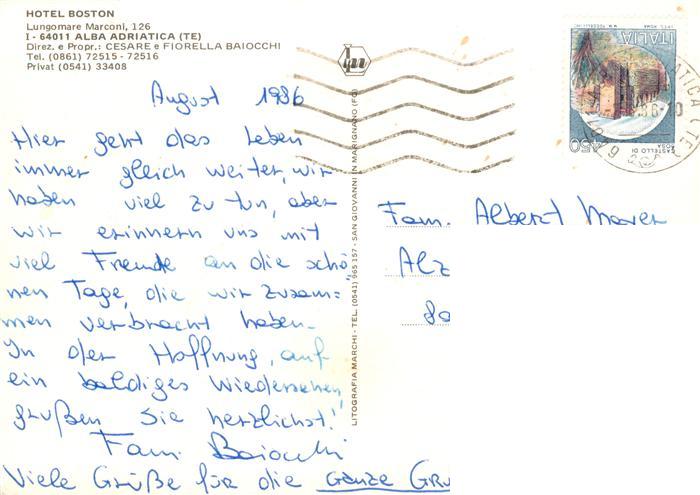 HOTEL BOSTON
Lungomare Marconi, 126
I - 64011 ALBA ADRIATICA (TE)
Direz. e Propr.: CESARE e FIORELLA BAIOCCHI
Tel. (0861) 72515 - 72516
Privat (0541) 33408
August 1986
Hier geht das Leben
immer gleich weiter, wir
haben viel zu tun, aber
wir erinnern uns mit
viel Freude an die schö
nen Tage, die wir zusam=
men verbracht haben.
In der Hoffnung, auf
ein baldiges Wiedersehen,
grüßen Sie herzlichst!
Fam. Baiocchi
Viele Grüße für die ganze Gru
LITOGRAFIA MARCHI - TEL. (0541) 965 157 - SAN GIOVANNI IN MARIGNANO (FO)
ITALIA
450
CASTELLO DI
Fam. Albert Mayer
Alz
80